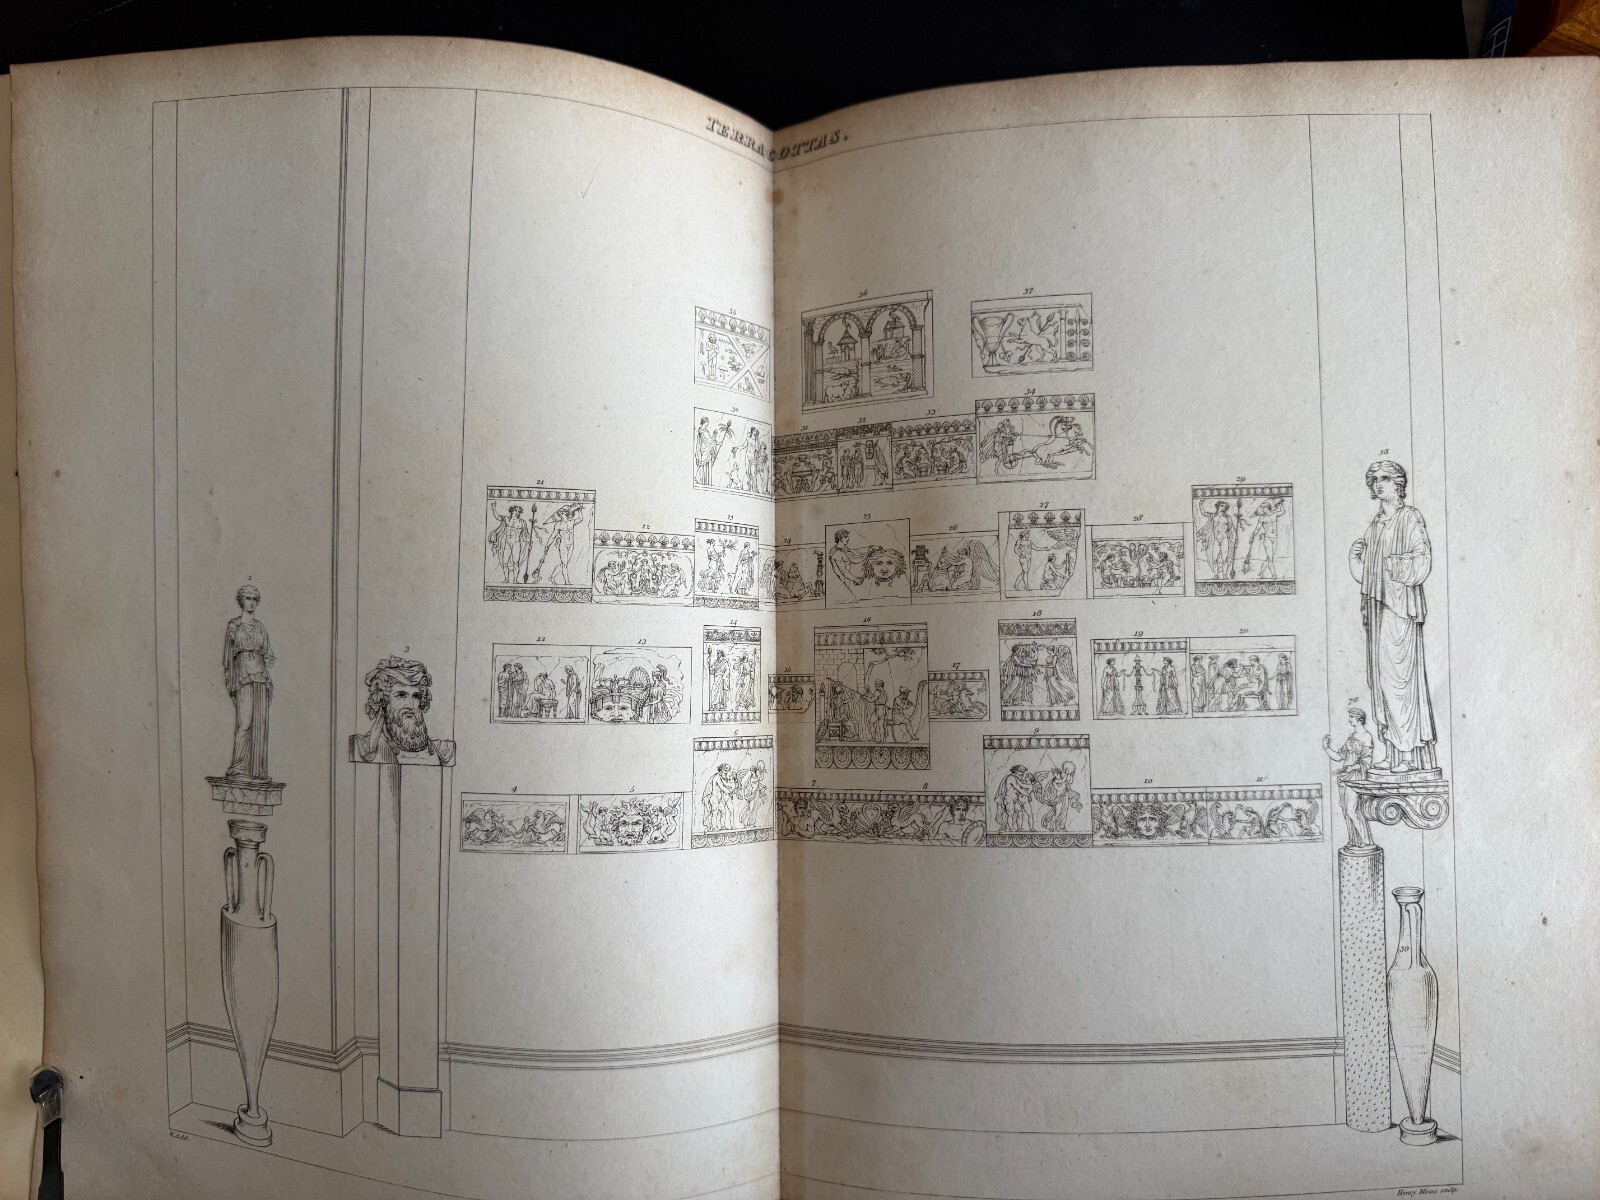 TERRACOTTAS.
35
36
37
30
31
32
33
34
21
22
23
24
25
26
27
28
29
38
2
3
12
13
14
16
17
18
19
20
76
4
5
6
7
8
9
10
11
1
39
Henry Moses sculp.